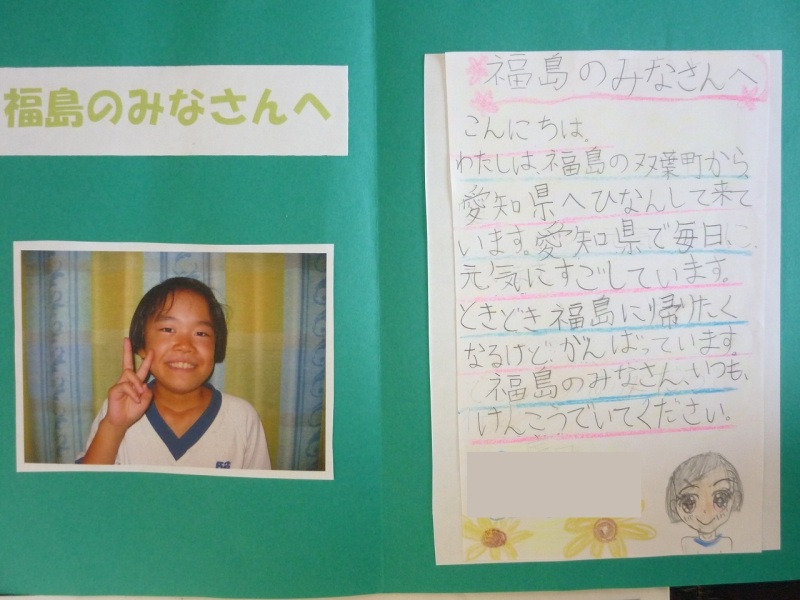 福島のみなさんへ
福島のみなさんへ
こんにちは。
わたしは、福島の双葉町から、
愛知県へひなんして来て
います。愛知県で毎日、
元気にすごしています。
ときどき福島に帰りたく
なるけど、がんばっています。
福島のみなさん、いつも、
けんこうでいてください。